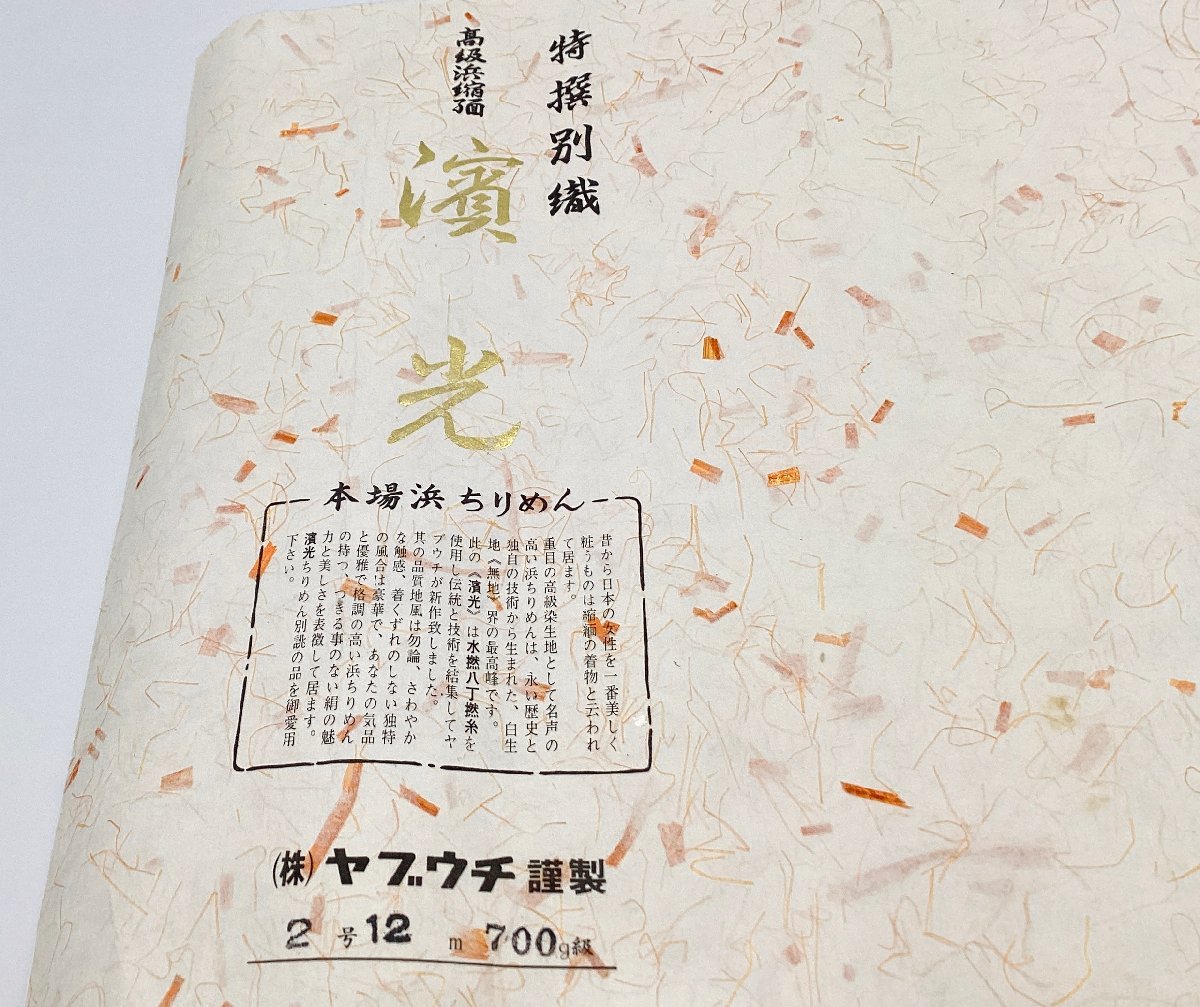 特撰別織
高級浜縮緬
濱光
本場浜ちりめん
昔から日本の女性を一番美しく
粧うものは縮緬の着物と云われ
て居ます。
重目の高級染生地として名声の
高い浜ちりめんは、永い歴史と
独自の技術から生まれた、白生
地《無地》界の最高峰です。
此の《濱光》は水撚八丁撚糸を
使用し伝統と技術を結集してヤ
ブウチが新作致しました。
其の品質地風は勿論、さわやか
な触感、着くずれのしない独特
の風合は豪華で、あなたの気品
と優雅で格調の高い浜ちりめん
の持つ、つきる事のない絹の魅
力と美しさを表徴して居ます。
濱光ちりめん別誂の品を御愛用
下さい。
(株)ヤブウチ謹製
2号12m700g級